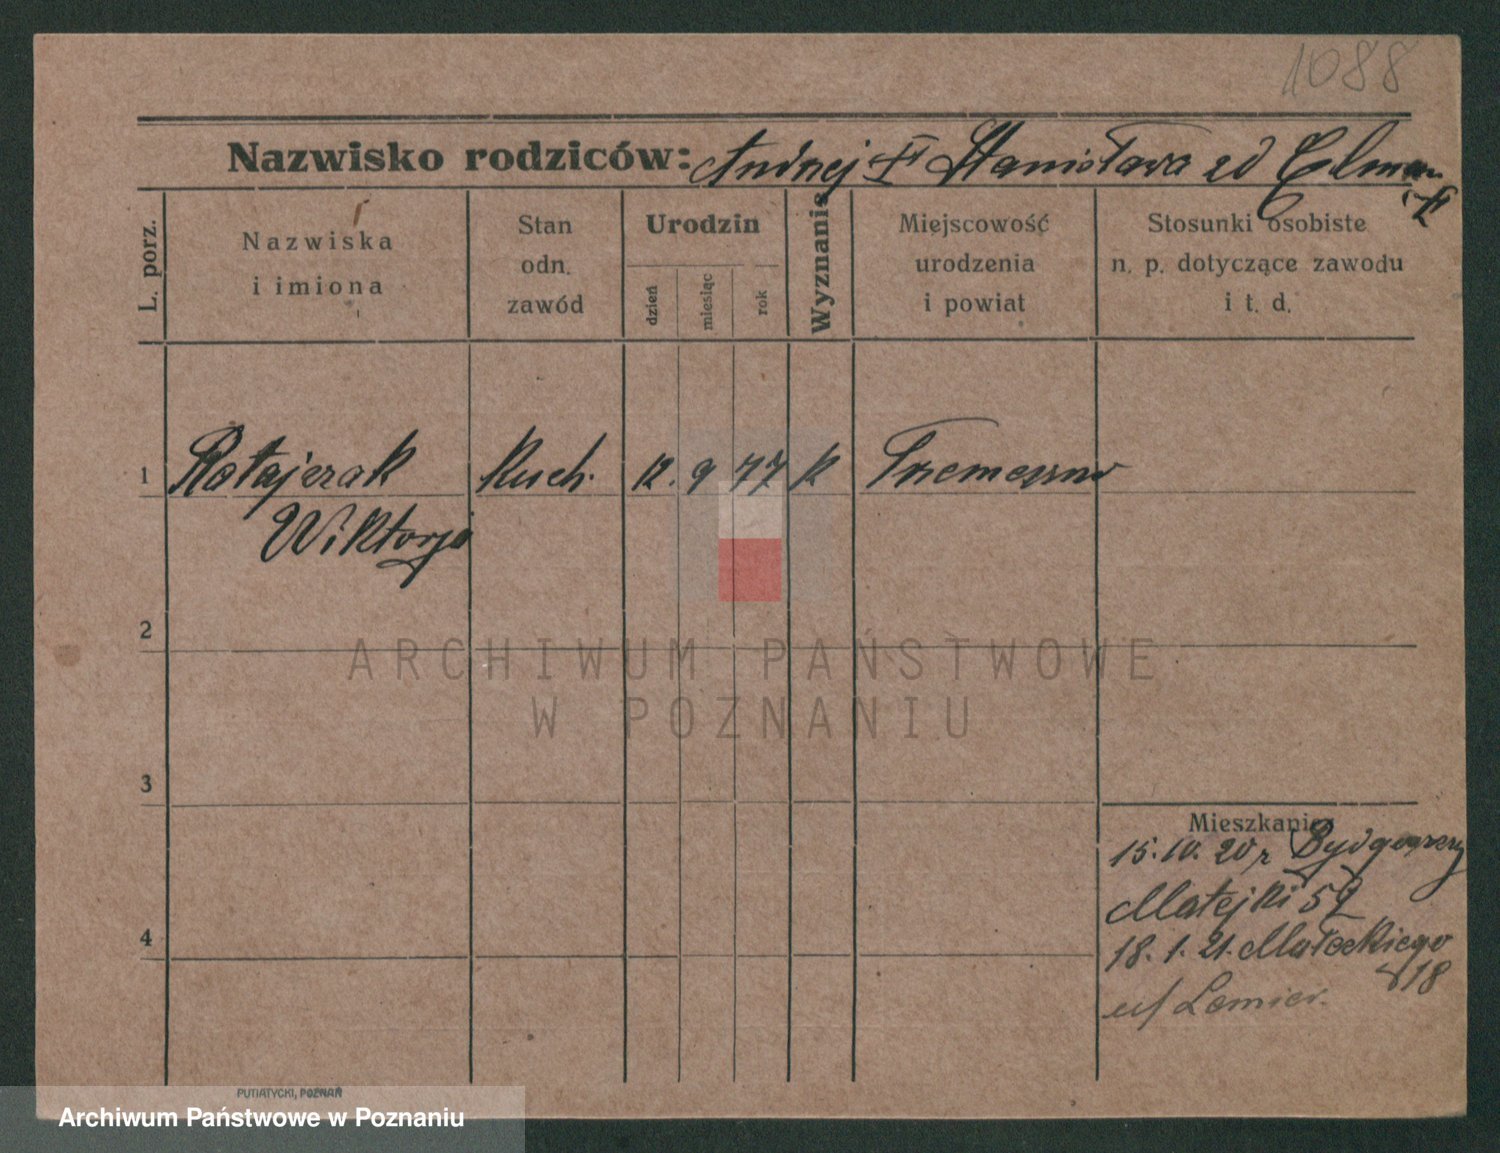 1088
Nazwisko rodziców: Andrzej † Stanisława zd
L. porz.
Nazwiska
i imiona
Stan
odn.
zawód
Urodzin
dzień
miesiąc
rok
Wyznanie
Miejscowość
urodzenia
i powiat
Stosunki osobiste
n. p. dotyczące zawodu
i t. d.
1 Ratajczak Kuch. 12. 9 77 k Tremeszno
Wiktorja
2
3
4
Mieszkanie
15.10.20 r Bydgoszczy
Matejki 52
18.1.21. Małeckiego
18
u/
ARCHIWUM PAŃSTWOWE
W POZNANIU
PUTIATYCKI, POZNAŃ
Archiwum Państwowe w Poznaniu